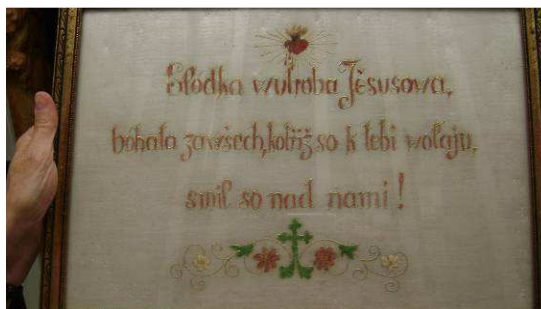 Słódka wutroba Jězusowa,
bóhata za wšěch, kotřiž so k tebi wołaju,
smil so nad nami!